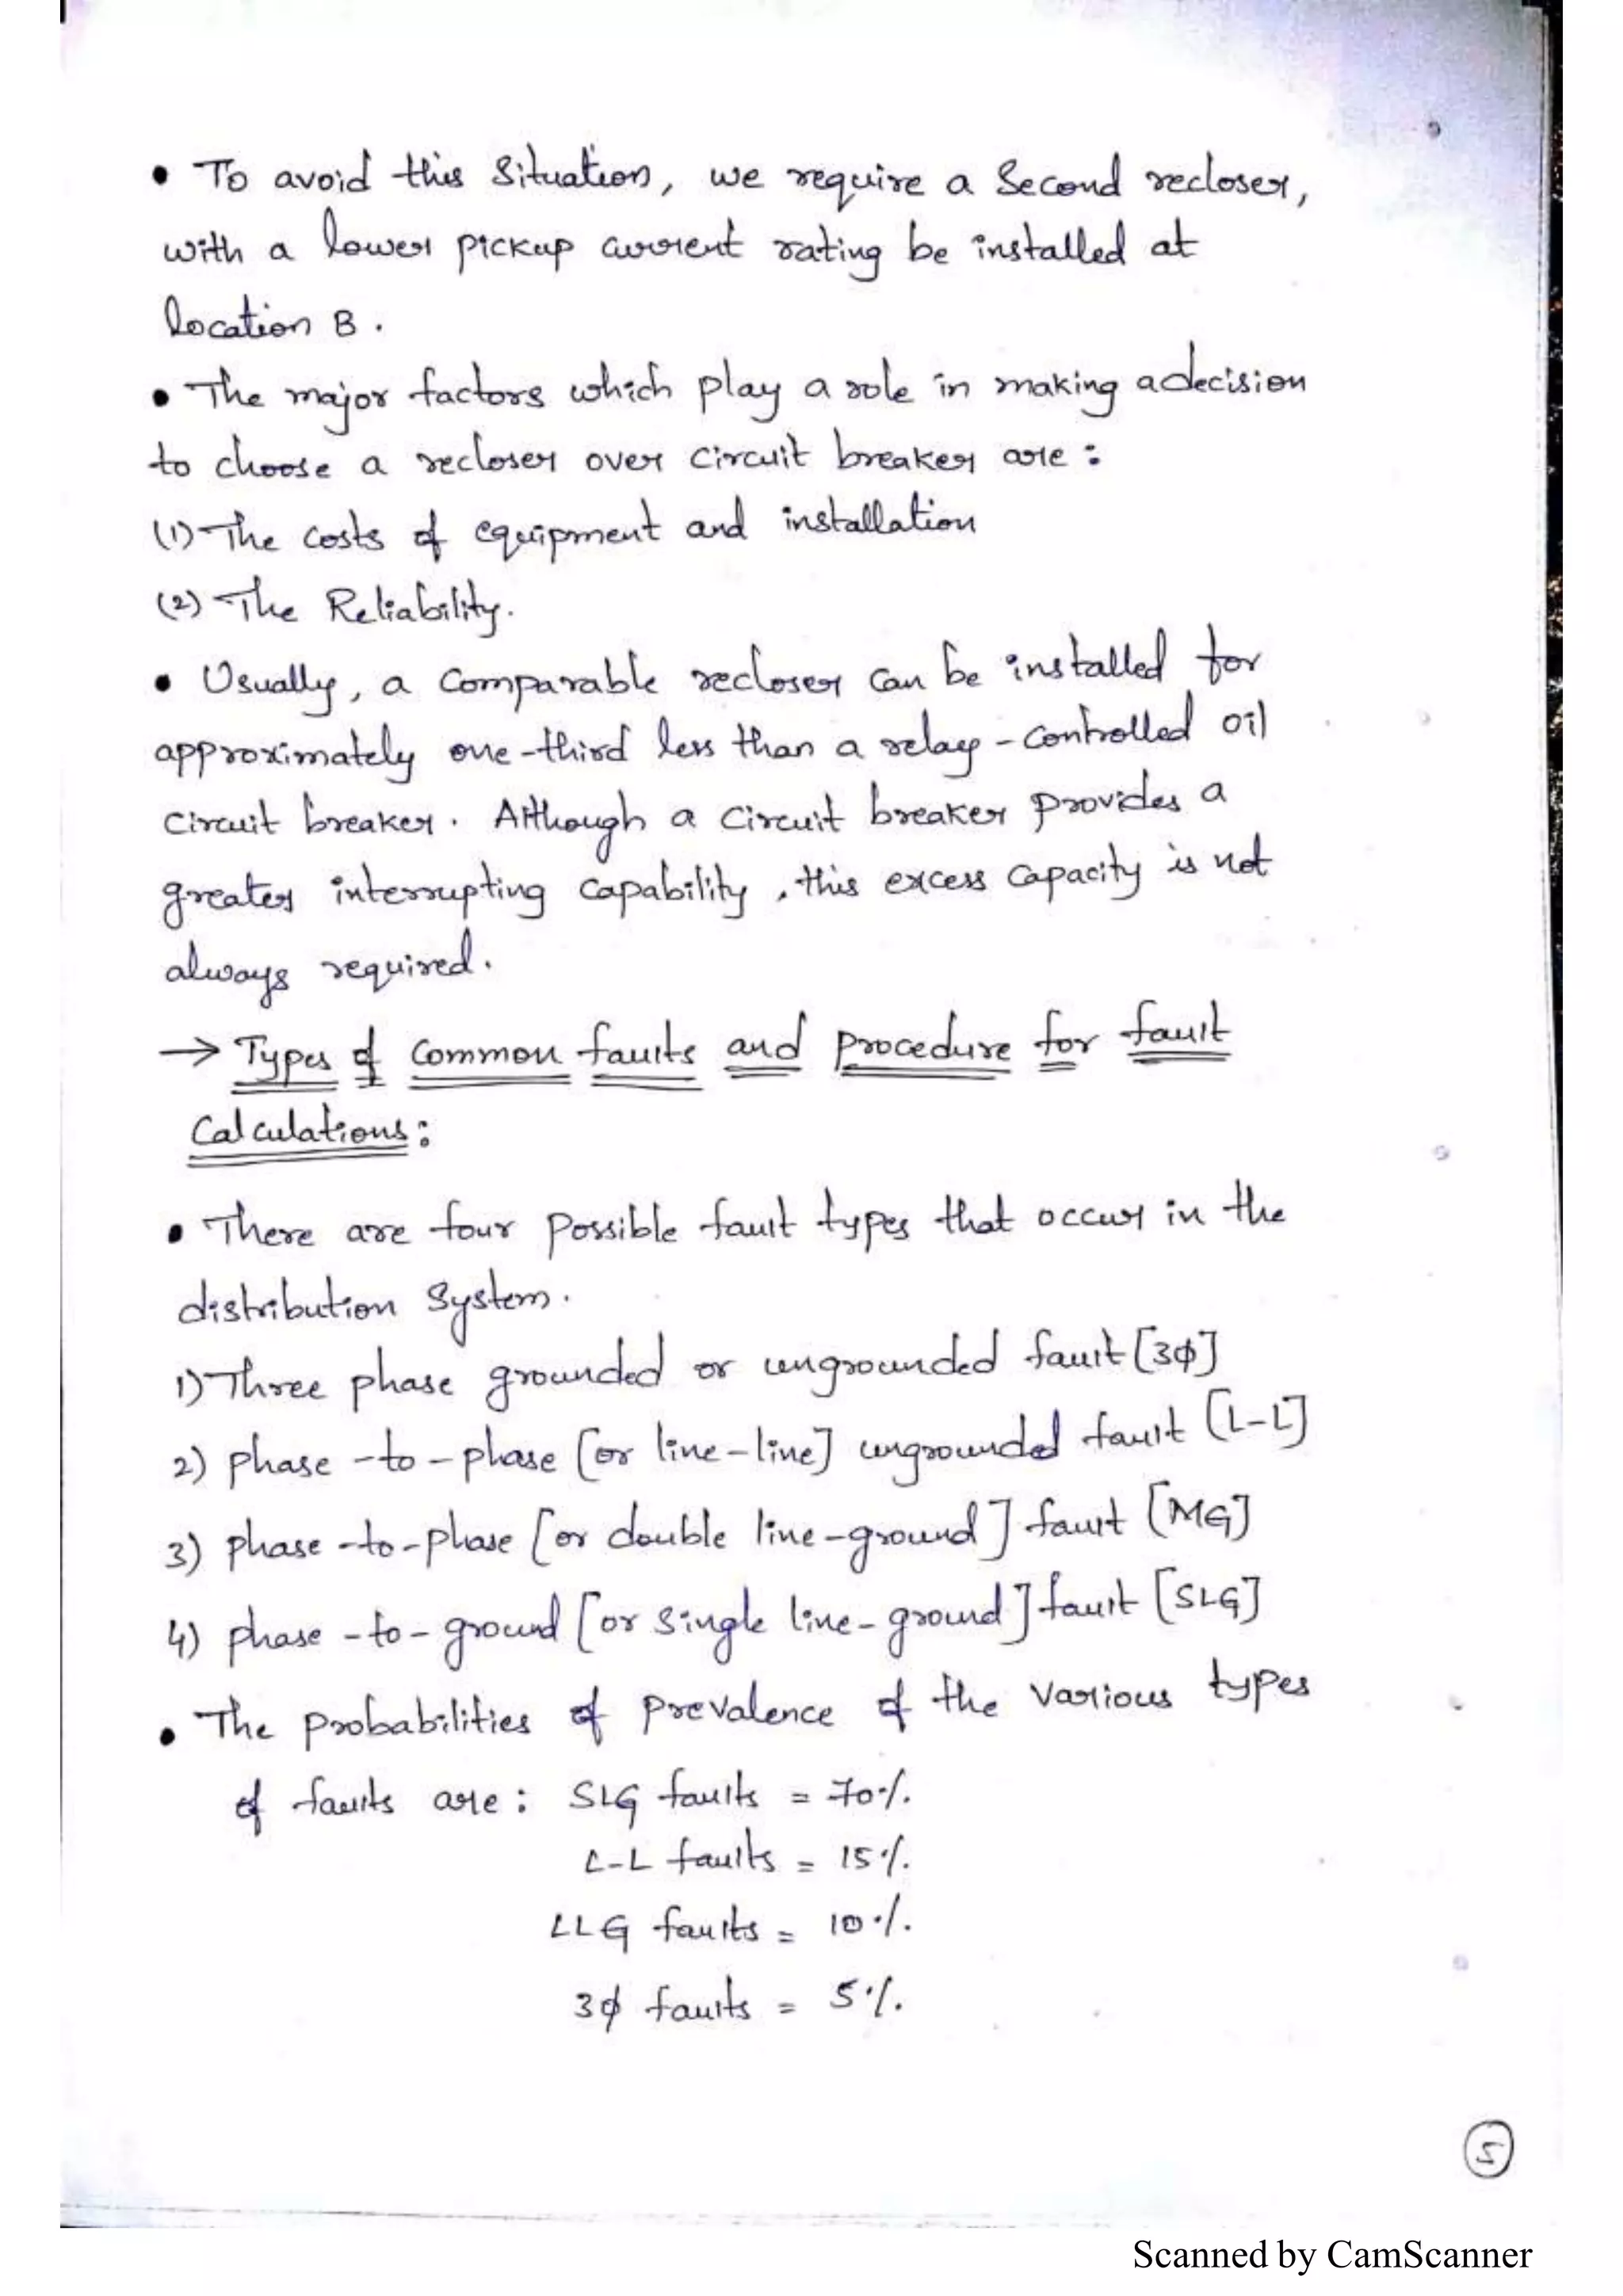 • To avoid this situation, we require a Second recloser,
with a lower pickup current rating be installed at
location B.
• The major factors which play a role in making a decision
to choose a recloser over Circuit breaker are :
(1) The costs of equipment and installation
(2) The Reliability.
• Usually, a Comparable recloser can be installed for
approximately one-third less than a relay-controlled oil
circuit breaker. Although a circuit breaker provides a
greater interrupting capability, this excess capacity is not
always required.
→ Types of Common faults and procedure for fault
Calculations:
• There are four possible fault types that occur in the
distribution system.
1) Three phase grounded or ungrounded fault [3ϕ]
2) phase-to-phase [or line-line] ungrounded fault [L-L]
3) phase-to-phase [or double line-ground] fault [MG]
4) phase-to-ground [or single line-ground] fault [SLG]
• The probabilities of prevalence of the various types
of faults are : SLG faults = 70%.
L-L faults = 15%.
LLG faults = 10%.
3ϕ faults = 5%.
5
Scanned by CamScanner